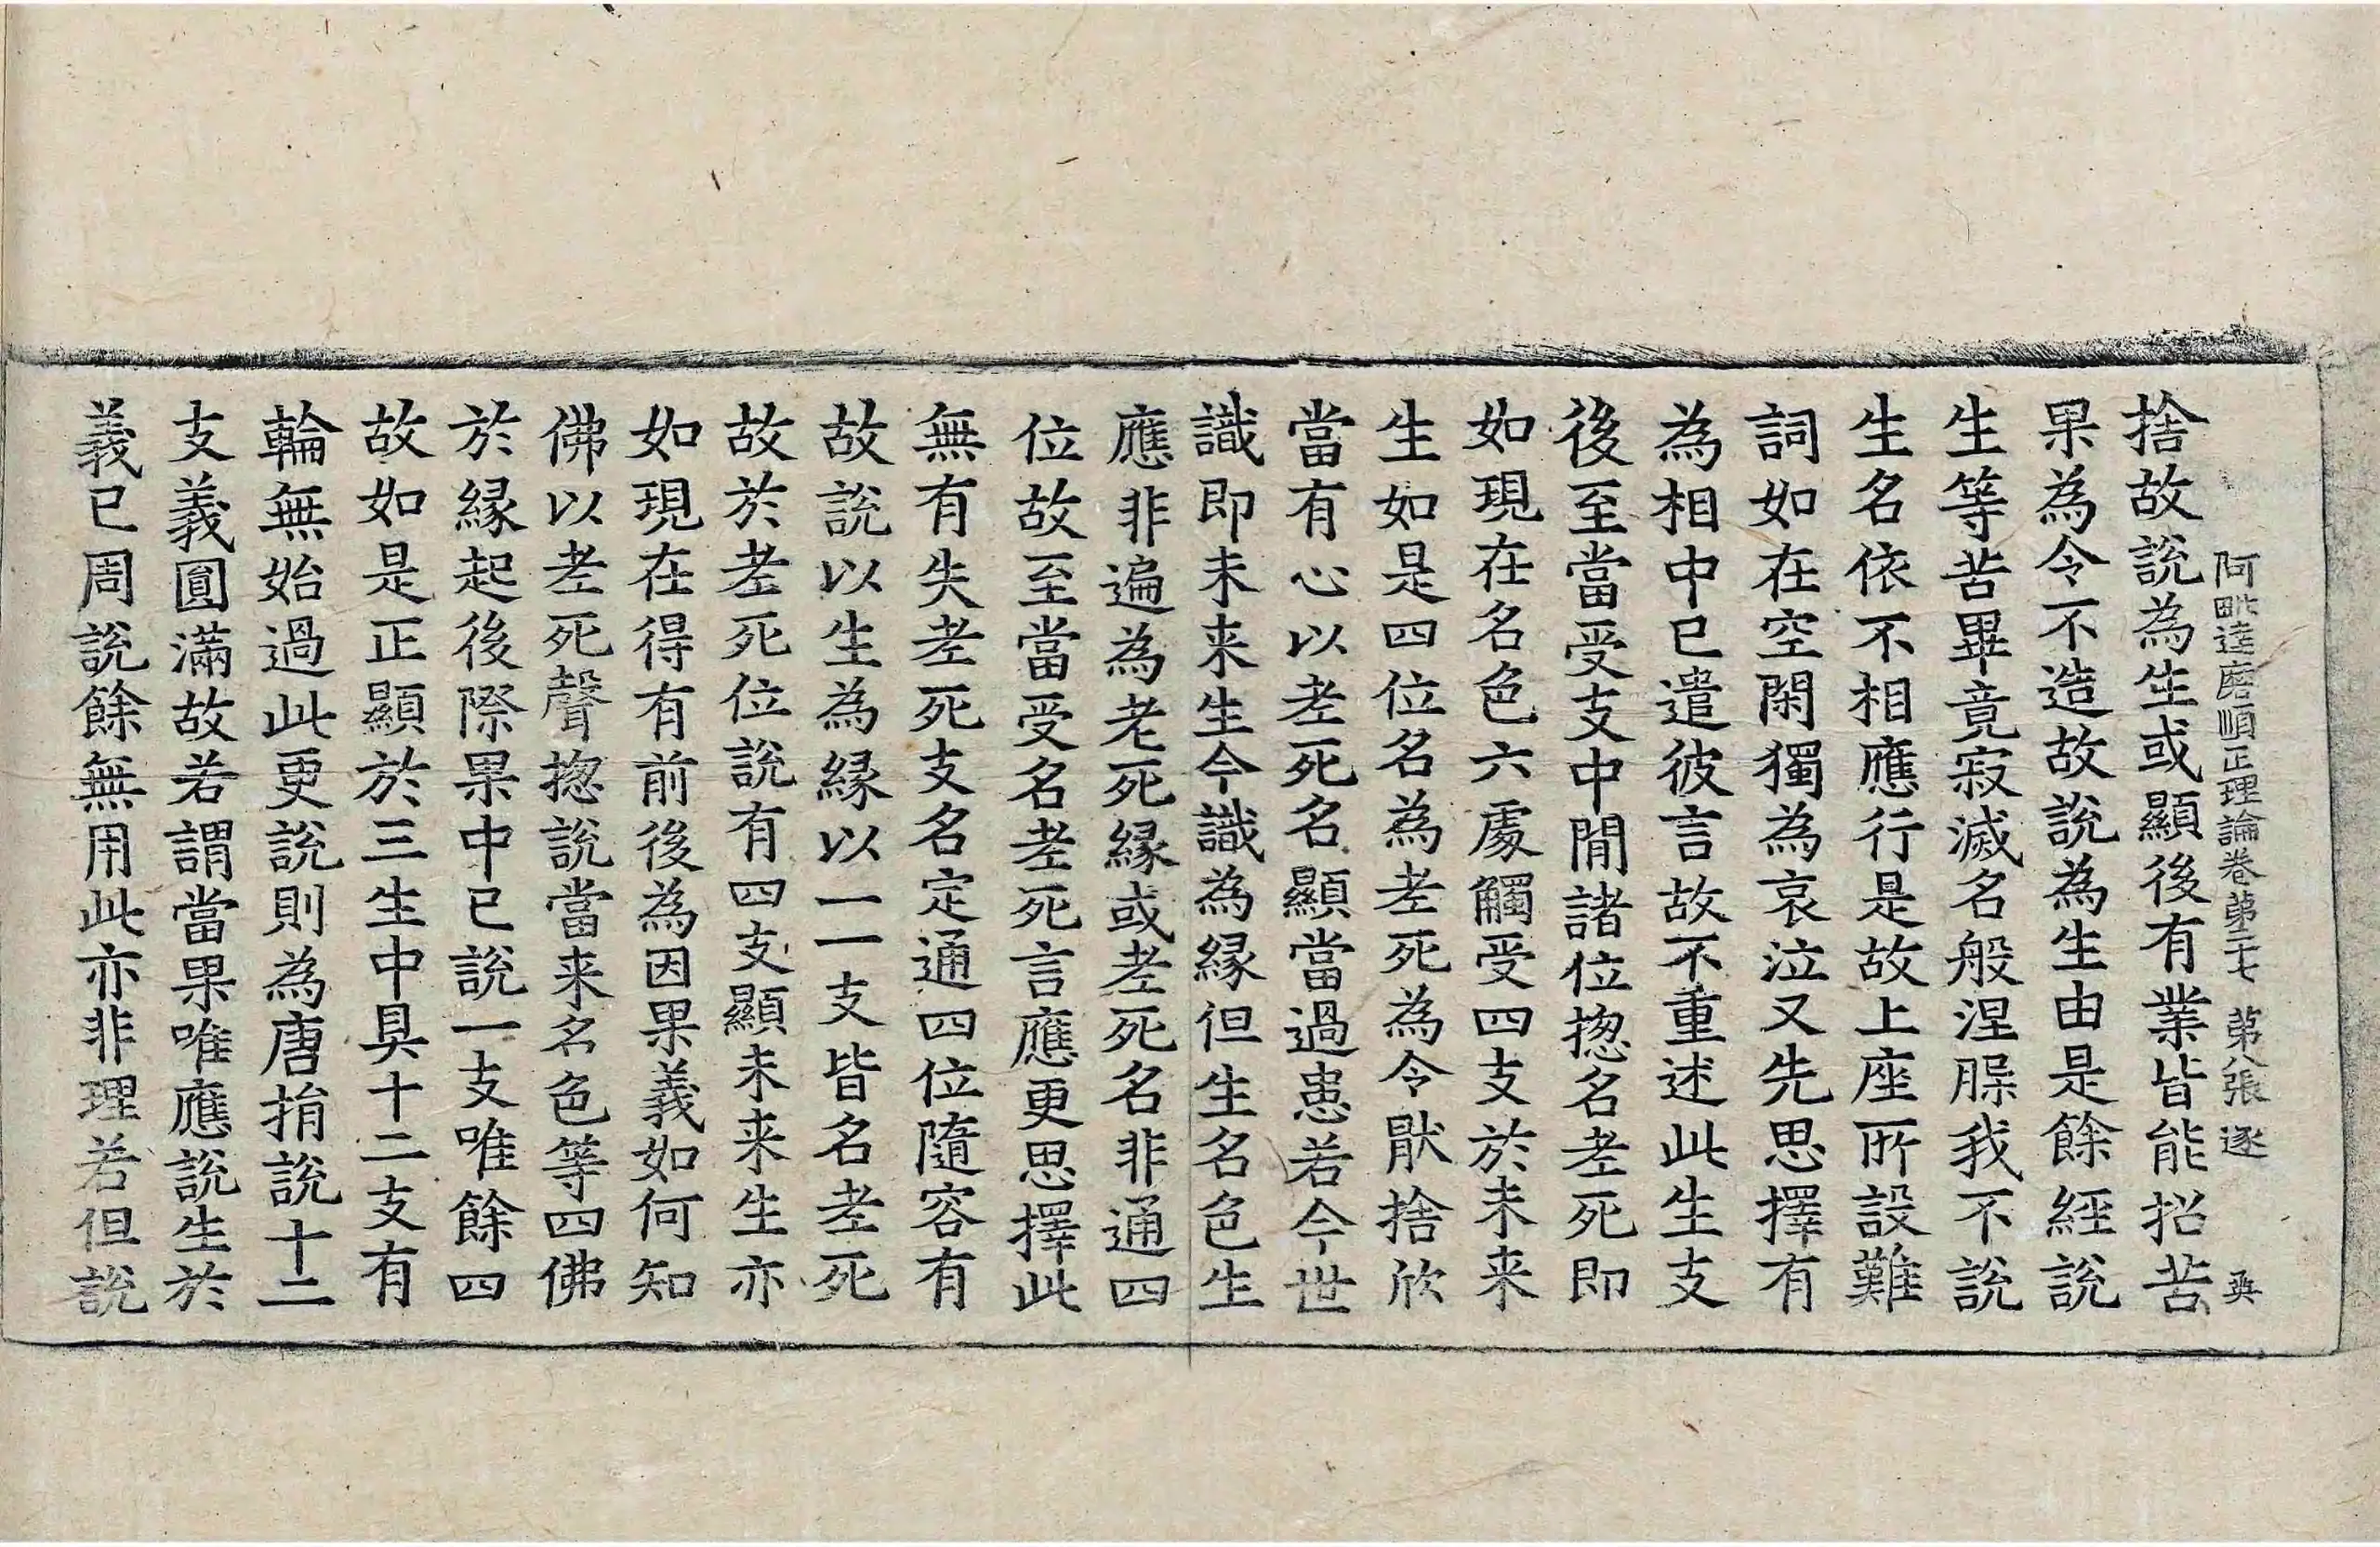 阿毗達磨順正理論卷苐二十七 苐八張 逐 㒹
捨故說為生或顯後有業皆能招苦
果為令不造故說為生由是餘経說
生等苦畢竟寂滅名般涅脲我不說
生名依不相應行是故上座所設難
詞如在空閑獨為哀泣又先思擇有
為相中已遣彼言故不重述此生支
後至當受支中閒諸位揔名耂死即
如現在名色六處觸受四支於未来
生如是四位名為耂死為令猒捨欣
當有心以耂死名顯當過患若今世
識即未来生今識為縁但生名色生
應非遍為老死縁或耂死名非通四
位故至當受名耂死言應更思擇此
無有失耂死支名定通四位隨容有
故說以生為縁以一一支皆名耂死
故於耂死位說有四支顯未来生亦
如現在得有前後為因果義如何知
佛以耂死聲揔說當来名色等四佛
於縁起後際果中已說一支唯餘四
故如是正顯於三生中具十二支有
輪無始過此更說則為唐捐說十二
支義圓滿故若謂當果唯應說生於
義已周說餘無用此亦非理若但說